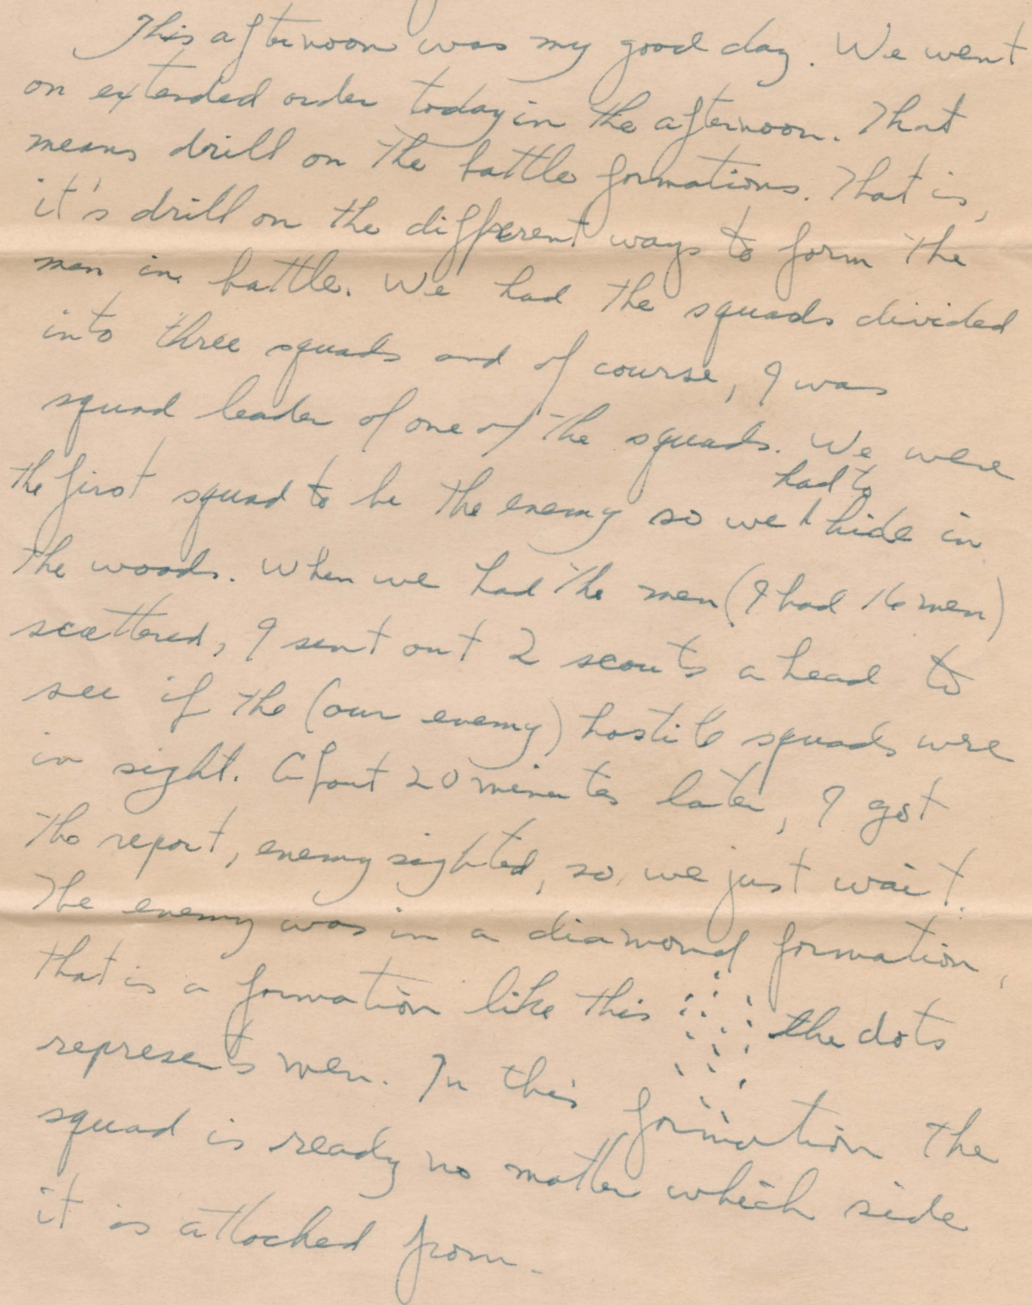 This afternoon was my good day. We went
on extended order today in the afternoon. That
means drill on the battle formations. That is,
it's drill on the different ways to form the
men in battle. We had the squads divided
into three squads and of course, I was
squad leader of one of the squads. We were
had to
the first squad to be the enemy so we ^ hide in
the woods. When we had the men (I had 16 men)
scattered, I sent out 2 scouts ahead to
see if the (our enemy) hostile squads were
in sight. About 20 minutes later, I got
the report, enemy sighted, so we just wait.
The enemy was in a diamond formation,
that is a formation like this the dots
represents men. In this formation the
squad is ready no matter which side
it is attacked from.